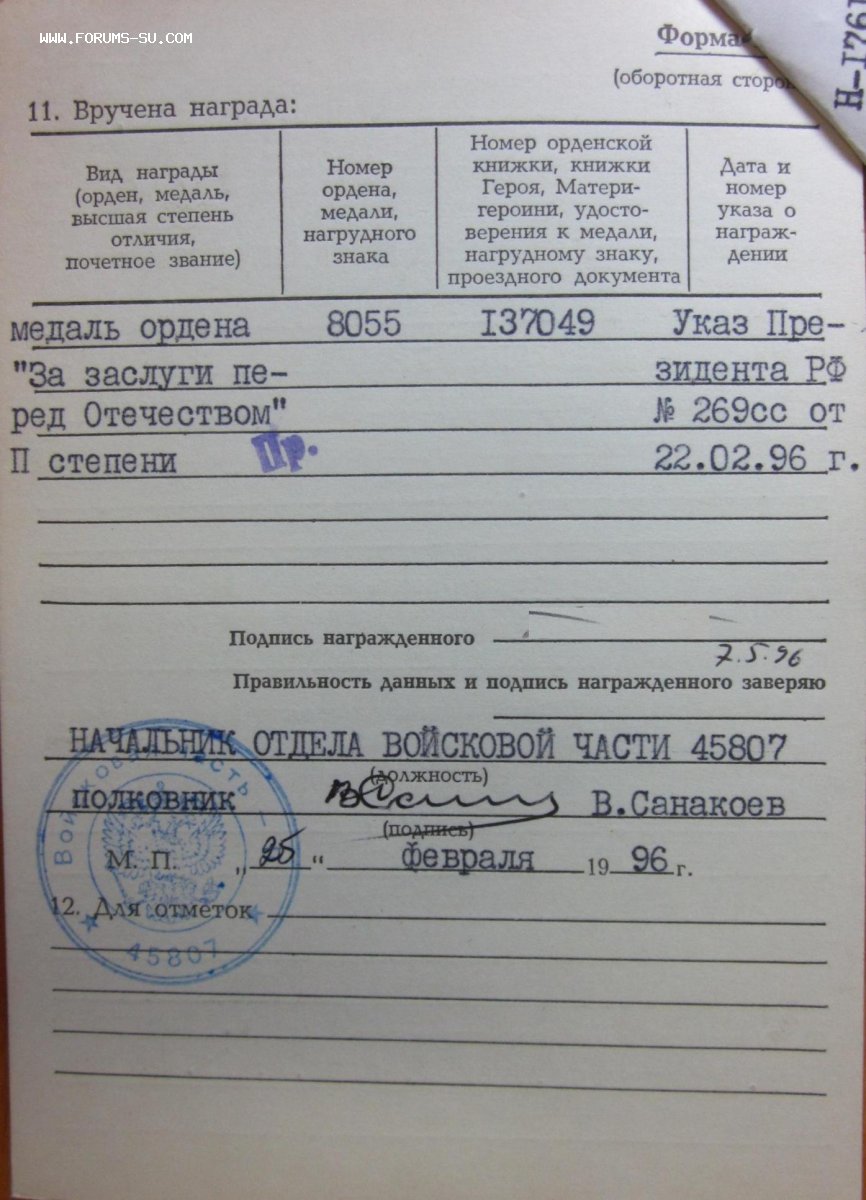 WWW.FORUMS-SU.COM
Форма
(оборотная сторон
Н-1761
11. Вручена награда:
Вид награды
(орден, медаль,
высшая степень
отличия,
почетное звание)
Номер
ордена,
медали,
нагрудного
знака
Номер орденской
книжки, книжки
Героя, Матери-
героини, удосто-
верения к медали,
нагрудному знаку,
проездного документа
Дата и
номер
указа о
награж-
дении
медаль ордена 8055 I37049 Указ Пре-
"За заслуги пе- зидента РФ
ред Отечеством" № 269сс от
П степени Пр. 22.02.96 г.
Подпись награжденного
7.5.96
Правильность данных и подпись награжденного заверяю
НАЧАЛЬНИК ОТДЕЛА ВОЙСКОВОЙ ЧАСТИ 45807
(должность)
полковник В.Санакоев
(подпись)
М. П. „25“ февраля 1996 г.
12. Для отметок
Войсковая часть –
45807